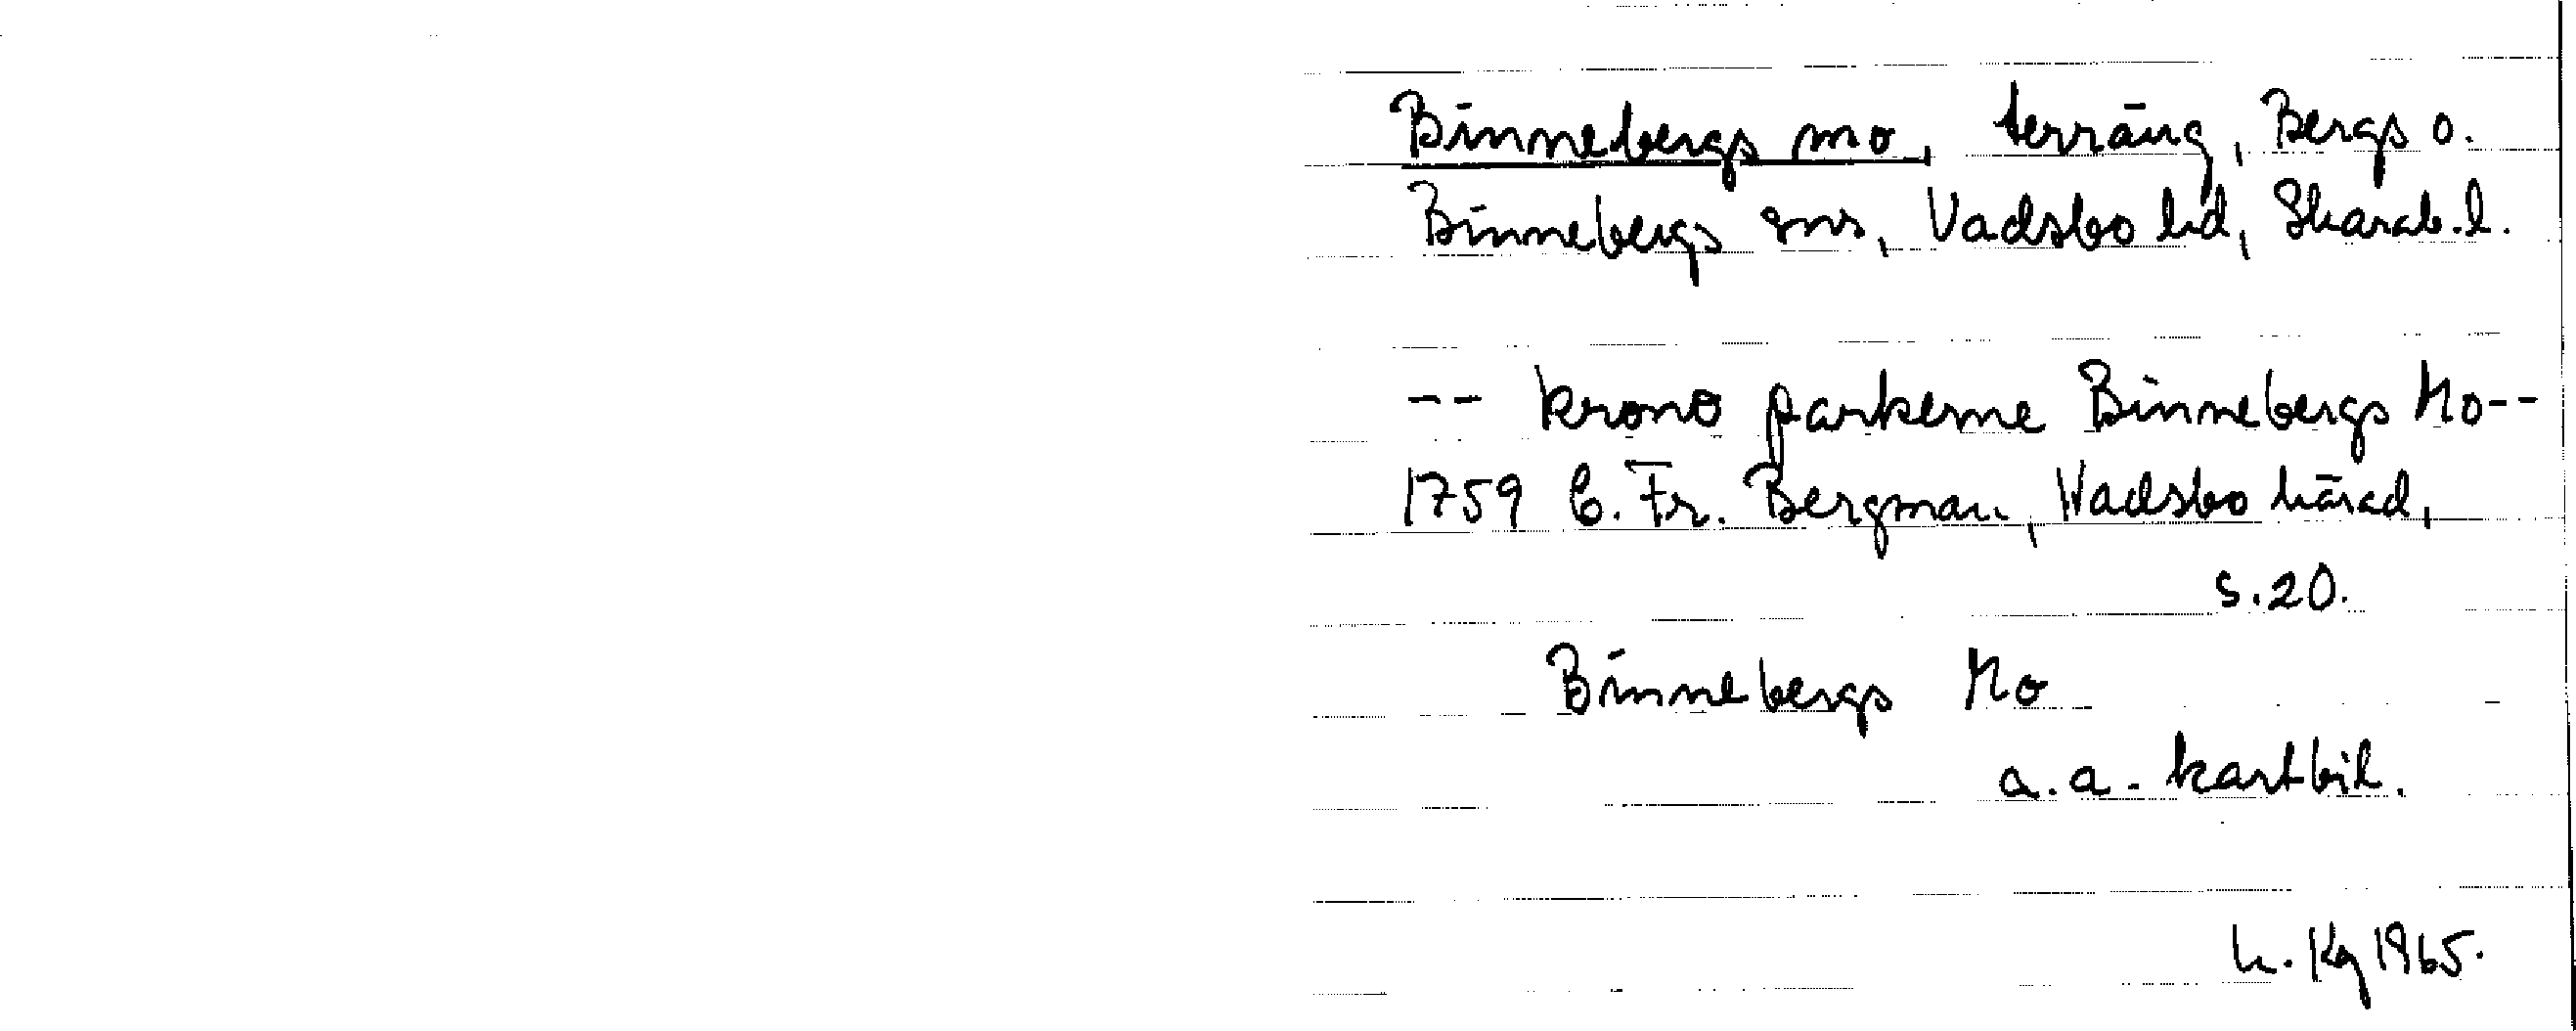 Binnebergs mo, terräng, Bergs o.
Binnebergs snr, Vadsbo hd, Skarab.l.
-- krono parkerne Binnebergs Mo--
1759 C. Fr. Bergman, Wadsbo härad,
s.20.
Binnebergs Mo
a.a. kartbil.
h. Kg 1965.